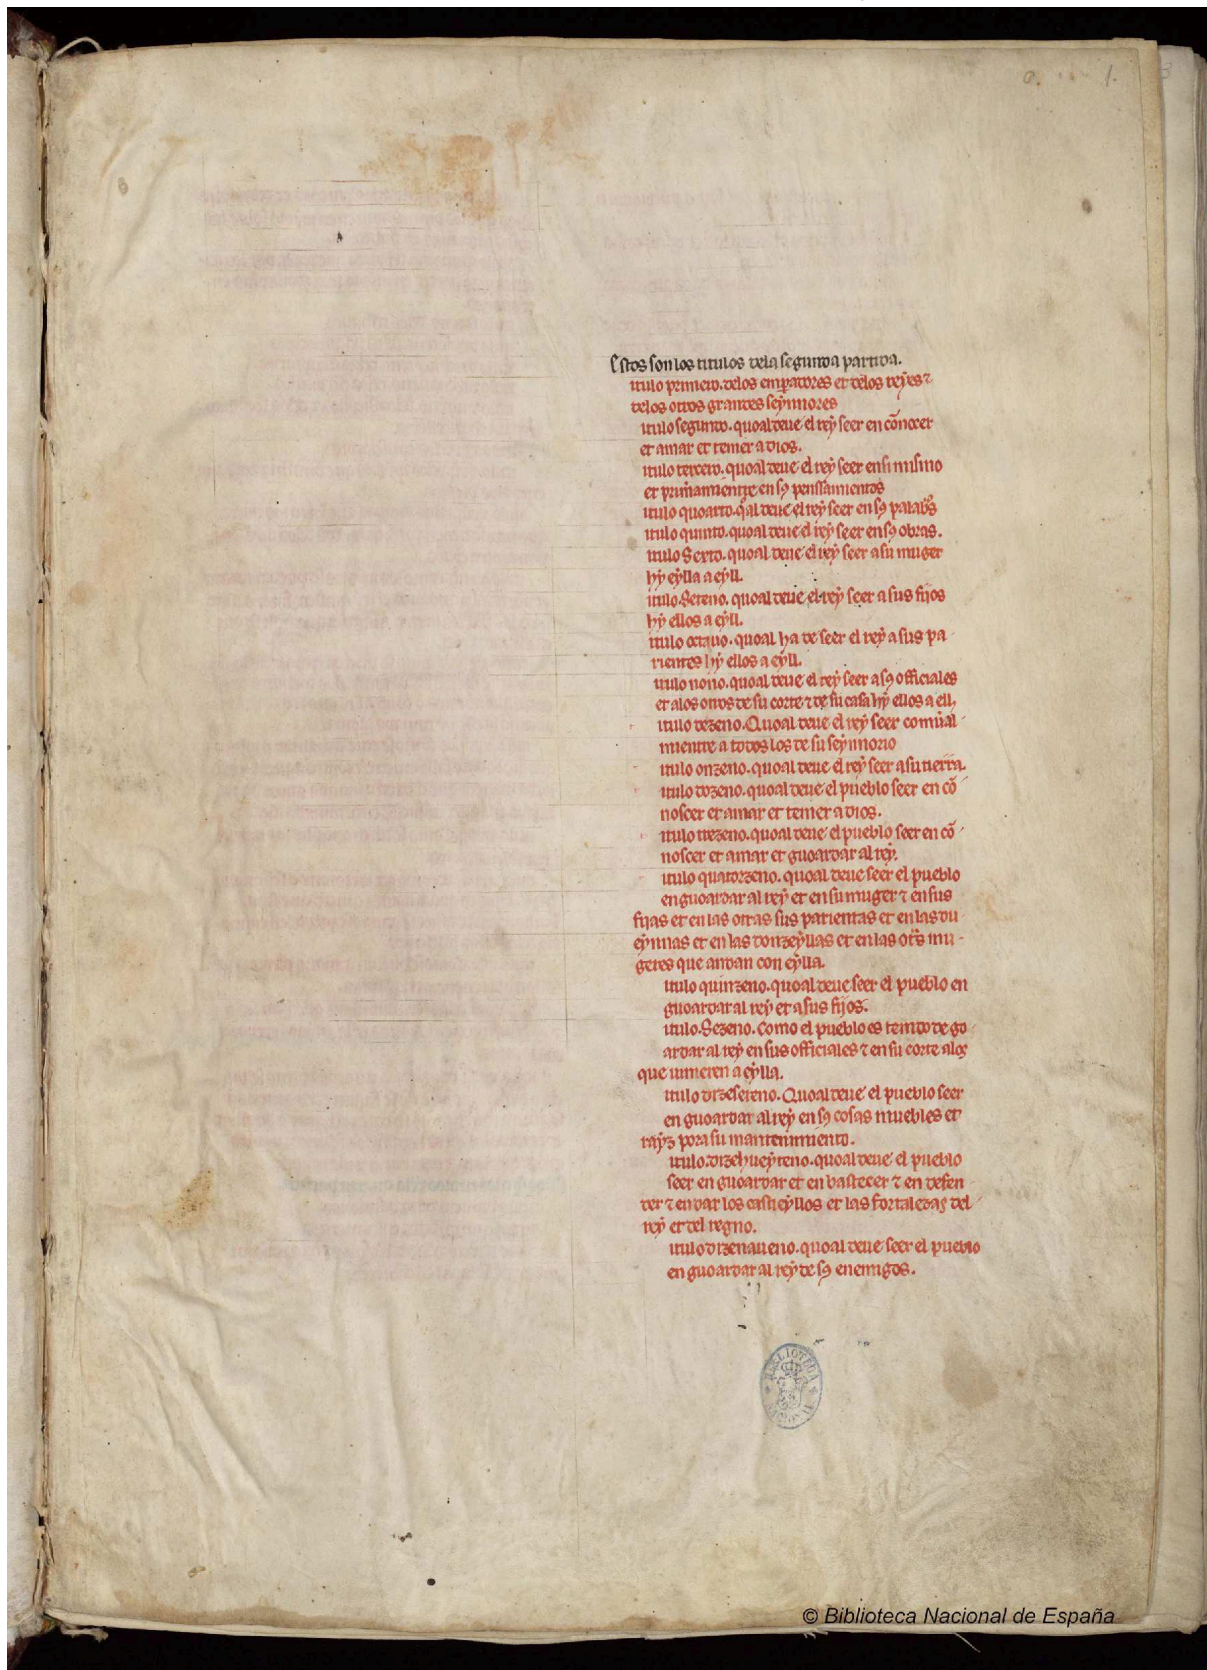 1.
Estos son los titulos dela segunda partida.
itulo primero. delos emꝑadores et delos reẏes ⁊
delos otros grandes seẏnnores
itulo segundo. quoal deue el reẏ seer en cõnocer
et amar et temer a dios.
itulo tercero. quoal deue el reẏ seer en si mismo
et primamientre en sꝯ penssamientos
itulo quoarto. qͣl deue el reẏ seer en sꝯ palabͣs
itulo quinto. quoal deue el reẏ seer en sꝯ obras.
itulo Sexto. quoal deue el reẏ seer a su muger
hẏ eẏlla a eẏll.
itulo Seteno. quoal deue el reẏ seer a sus fijos
hẏ ellos a eẏll.
itulo octauo. quoal ha de seer el reẏ a sus pa
rientes hẏ ellos a eẏll.
itulo nono. quoal deue el reẏ seer a sꝯ officiales
et alos otros de su corte ⁊ de su casa hẏ ellos a ell,
itulo dezeno. Quoal deue el reẏ seer comũal
mientre a todos los de su seẏnnorio
itulo onzeno. quoal deue el reẏ seer a su tierra.
itulo dozeno. quoal deue el pueblo seer en cõ
noscer et amar et temer a dios.
itulo trezeno. quoal deue el pueblo seer en cõ
noscer et amar et guoardar al reẏ.
itulo quatorzeno. quoal deue seer el pueblo
en guoardar al reẏ et en su muger ⁊ en sus
fijas et en las otras sus parientas et en las du
eẏnnas et en las donzeẏllas et en las otͣs mu
geres que andan con eẏlla.
itulo quinzeno. quoal deue seer el pueblo en
guoardar al reẏ et a sus fijos.
itulo. Sezeno. Como el pueblo es tenido de go
ardar al reẏ en sus officiales ⁊ en su corte alos
que uinieren a eẏlla.
itulo dizeseteno. Quoal deue el pueblo seer
en guoardar al reẏ en sꝯ cosas muebles et
raẏz pora su mantenimiento.
itulo. dizehueẏteno. quoal deue el pueblo
seer en guoardar et en bastecer ⁊ en defen
der ⁊ en dar los casticẏllos et las fortalezas del
reẏ et del regno.
itulo dizenaueno. quoal deue seer el pueblo
en guoardar al reẏ de sꝯ enemigos.
BIBLIOTECA NACIONAL
© Biblioteca Nacional de España